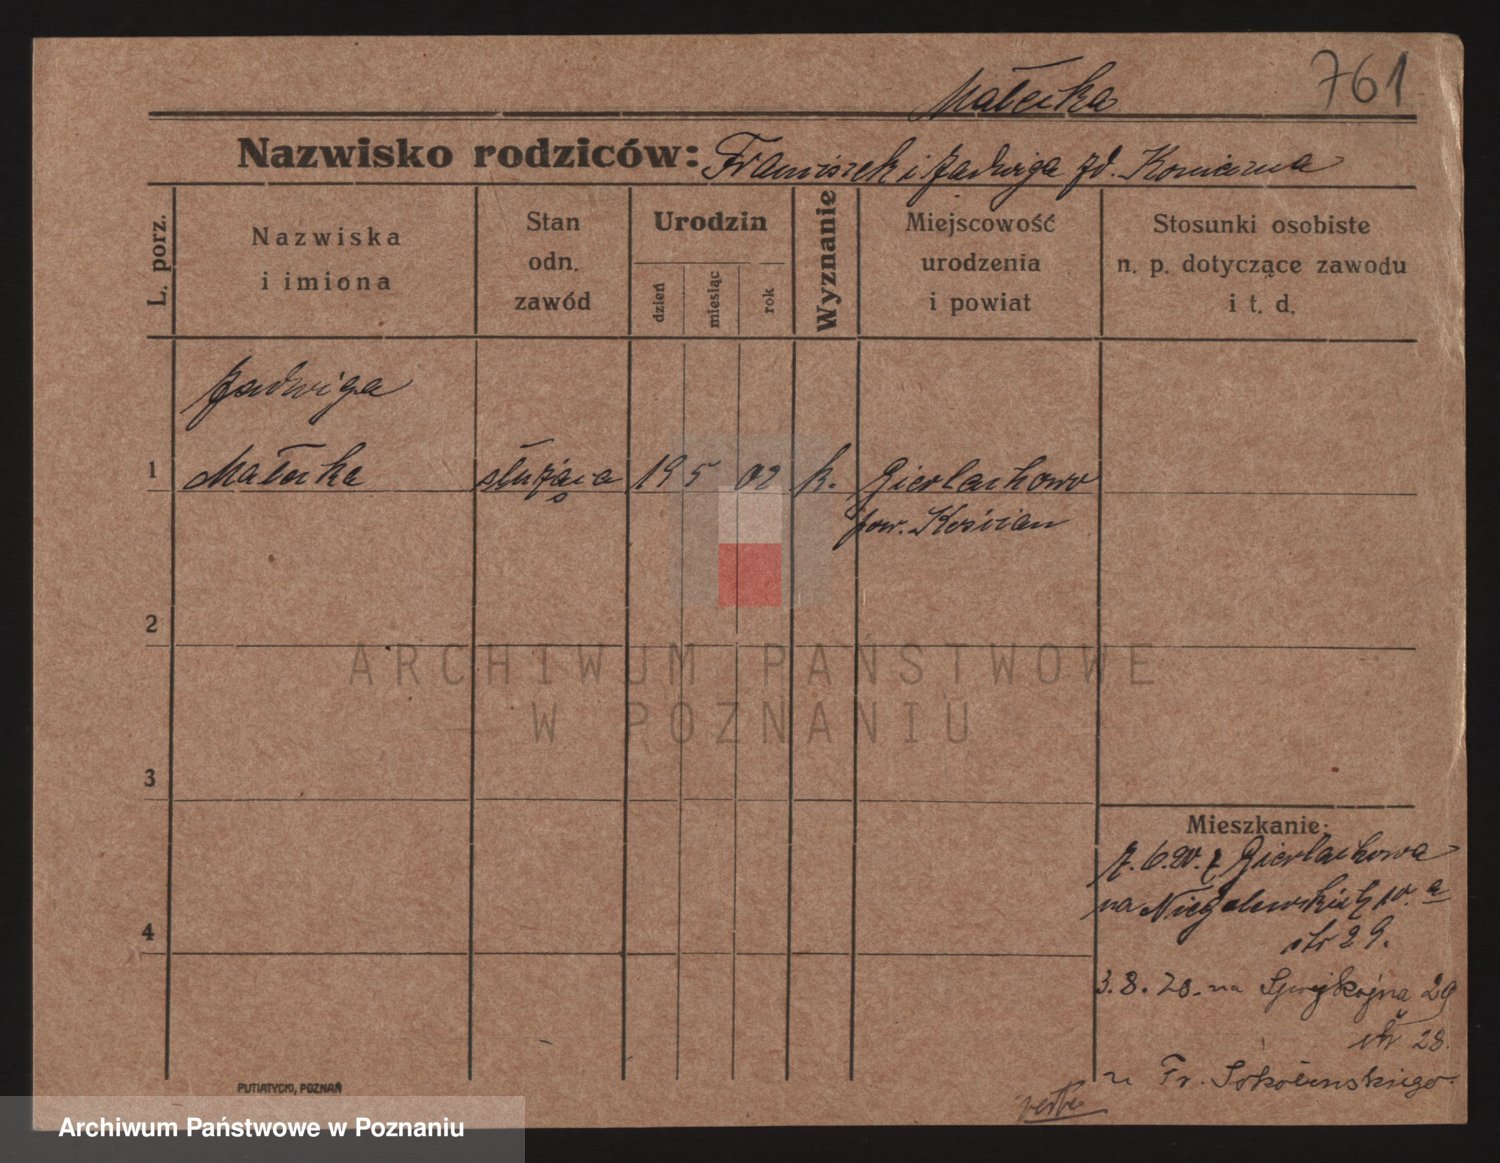 761
Małecka
Nazwisko rodziców: Franciszek i Jadwiga zd. Konieczna
L. porz.
Nazwiska
i imiona
Stan
odn.
zawód
Urodzin
dzień
miesiąc
rok
Wyznanie
Miejscowość
urodzenia
i powiat
Stosunki osobiste
n. p. dotyczące zawodu
i t. d.
Jadwiga
1 Małecka służąca 19 5 02 k. Gierlachowo
pow. Kościan
2
ARCHIWUM PAŃSTWOWE
W POZNANIU
3
Mieszkanie:
7.6.20. z Gierlachowa
na Niegolewskich
4
str 29.
3.8.20. na Spokojna 29
str 28.
u Fr.
PUTIATYCKI, POZNAŃ
verte
Archiwum Państwowe w Poznaniu